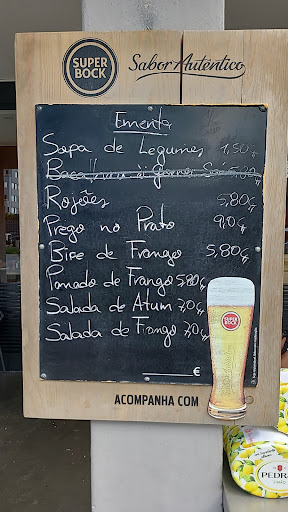 SUPER BOCK
Sabor Autêntico
Ementa
Sopa de Legumes 1,50€
Rojões 5,80€
Prego no Prato 9,0€
Bife de Frango 5,80€
Panado de Frango 5,80€
Salada de Atum 7,0€
Salada de Frango 7,0
€
SUPER BOCK
ACOMPANHA COM
PEDRAS